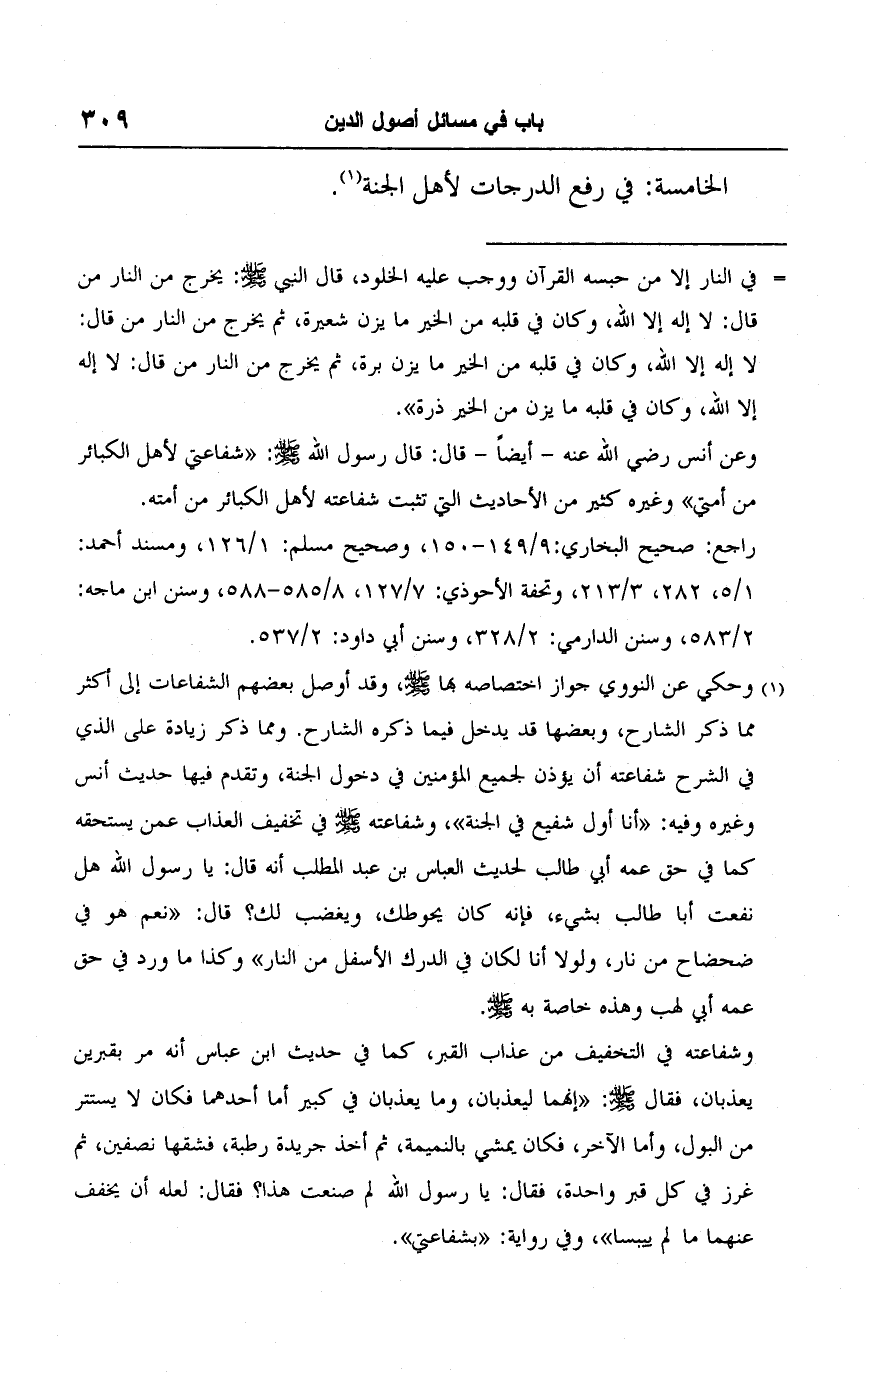 باب في مسائل أصول الدين ٣٠٩
الخامسة: في رفع الدرجات لأهل الجنة(١).
= في النار إلا من حبسه القرآن ووجب عليه الخلود، قال النبي ﷺ: يخرج من النار من
قال: لا إله إلا الله، وكان في قلبه من الخير ما يزن شعيرة، ثم يخرج من النار من قال:
لا إله إلا الله، وكان في قلبه من الخير ما يزن برة، ثم يخرج من النار من قال: لا إله
إلا الله، وكان في قلبه ما يزن من الخير ذرة».
وعن أنس رضي الله عنه – أيضاً – قال: قال رسول الله ﷺ: «شفاعتي لأهل الكبائر
من أمتي» وغيره كثير من الأحاديث التي تثبت شفاعته لأهل الكبائر من أمته.
راجع: صحيح البخاري: ١٤٩/٩–١٥٠، وصحيح مسلم: ١٢٦/١، ومسند أحمد:
٥/١، ٢٨٢، ٢١٣/٣، وتحفة الأحوذي: ١٢٧/٧، ٥٨٥/٨–٥٨٨، وسنن ابن ماجه:
٥٨٣/٢، وسنن الدارمي: ٣٢٨/٢، وسنن أبي داود: ٥٣٧/٢.
(١) وحكي عن النووي جواز اختصاصه بها ﷺ، وقد أوصل بعضهم الشفاعات إلى أكثر
مما ذكر الشارح، وبعضها قد يدخل فيما ذكره الشارح. ومما ذكر زيادة على الذي
في الشرح شفاعته أن يؤذن لجميع المؤمنين في دخول الجنة، وتقدم فيها حديث أنس
وغيره وفيه: «أنا أول شفيع في الجنة»، وشفاعته ﷺ في تخفيف العذاب عمن يستحقه
كما في حق عمه أبي طالب لحديث العباس بن عبد المطلب أنه قال: يا رسول الله هل
نفعت أبا طالب بشيء، فإنه كان يحوطك، ويغضب لك؟ قال: «نعم هو في
ضحضاح من نار، ولولا أنا لكان في الدرك الأسفل من النار» وكذا ما ورد في حق
عمه أبي لهب وهذه خاصة به ﷺ.
وشفاعته في التخفيف من عذاب القبر، كما في حديث ابن عباس أنه مر بقبرين
يعذبان، فقال ﷺ: «إنهما ليعذبان، وما يعذبان في كبير أما أحدهما فكان لا يستتر
من البول، وأما الآخر، فكان يمشي بالنميمة، ثم أخذ جريدة رطبة، فشقها نصفين، ثم
غرز في كل قبر واحدة، فقال: يا رسول الله لم صنعت هذا؟ فقال: لعله أن يخفف
عنهما ما لم ييبسا»، وفي رواية: «بشفاعتي».